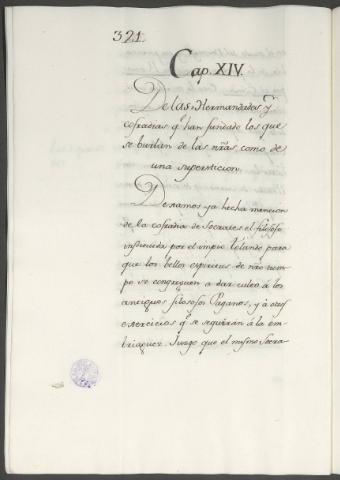 321.
Cap. XIV.
De las Hermandades y
cofradias q.e han fundado los que
se burlan de las nras, como de
una supersticion.
Dexamos ya hecha mencion
de la cofradia de Socrates el filosofo
instituida por el impio Tolando para
que los bellos espiritus de nro tiem-
po se congreguen a dar culto á los
antiguos filosofos Paganos, y á otros
exercicios q.e se seguirán á la em-
briaguez. Juzgo que el mismo Socra-